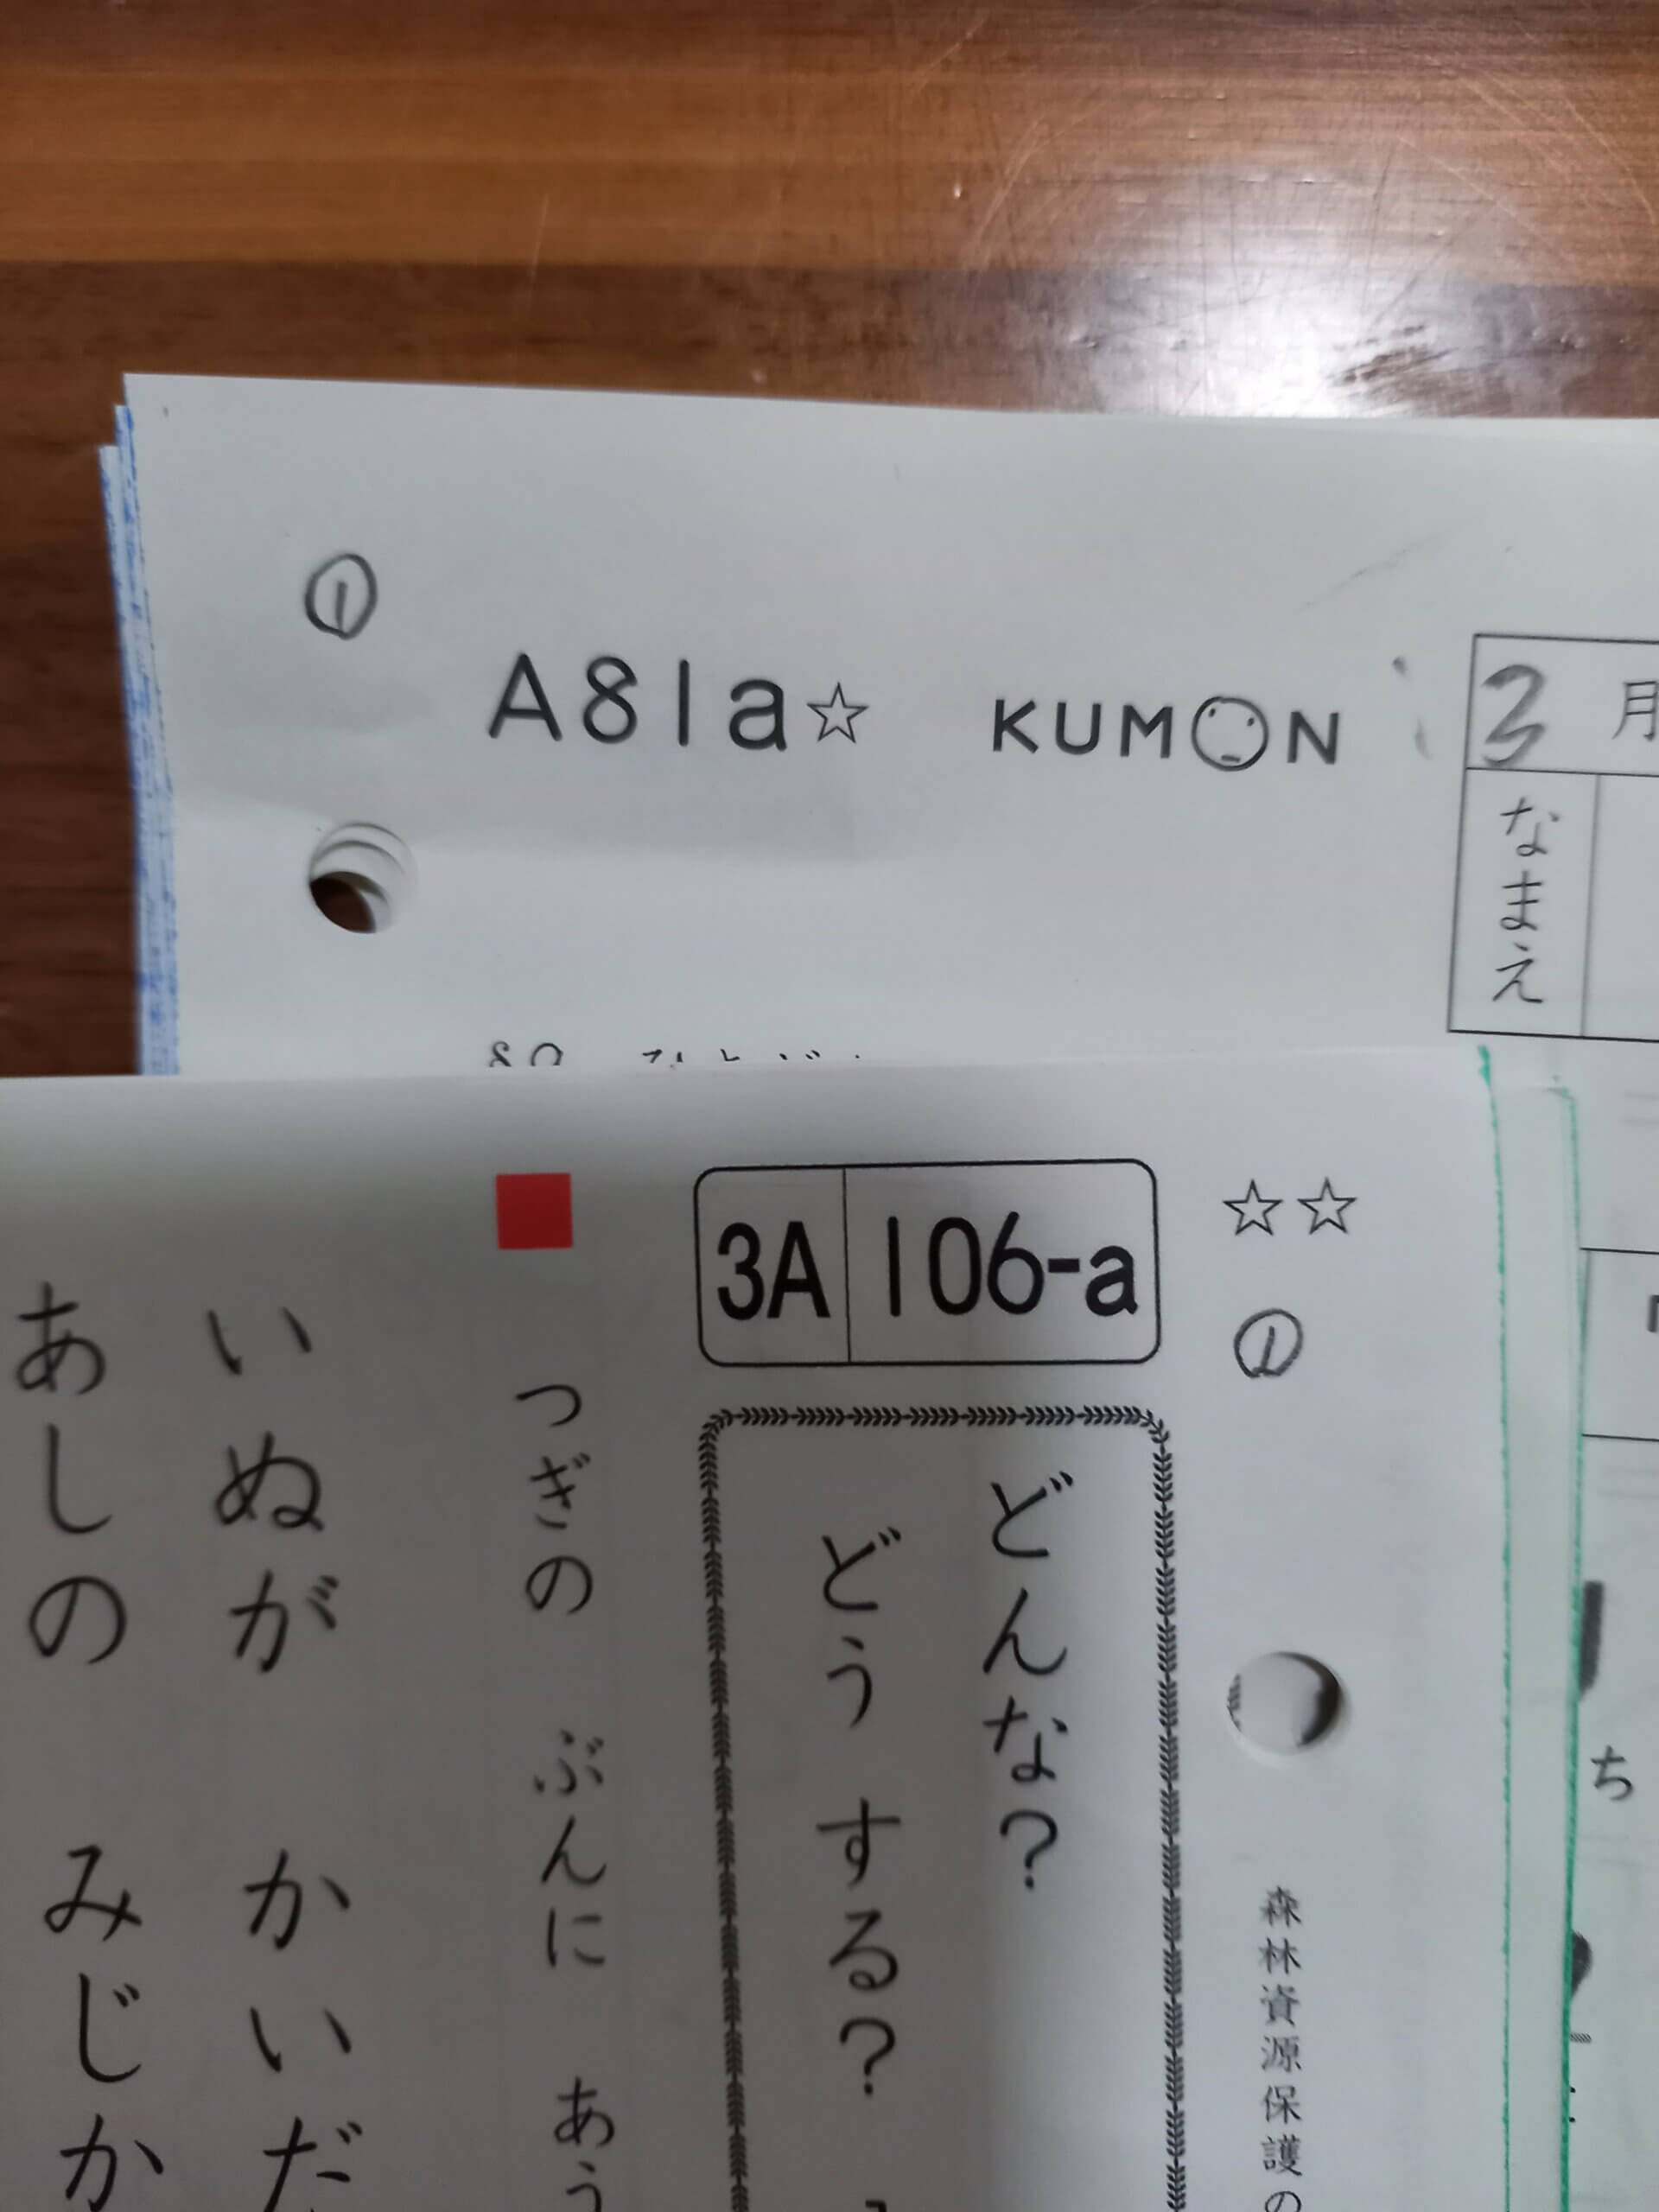 ①
A81a☆ KUMON
3月
なまえ
☆☆
①
3A 106-a
どんな?
どう する?
つぎの ぶんに あう
いぬが かいだ
あしの みじか
森林資源保護の
ち